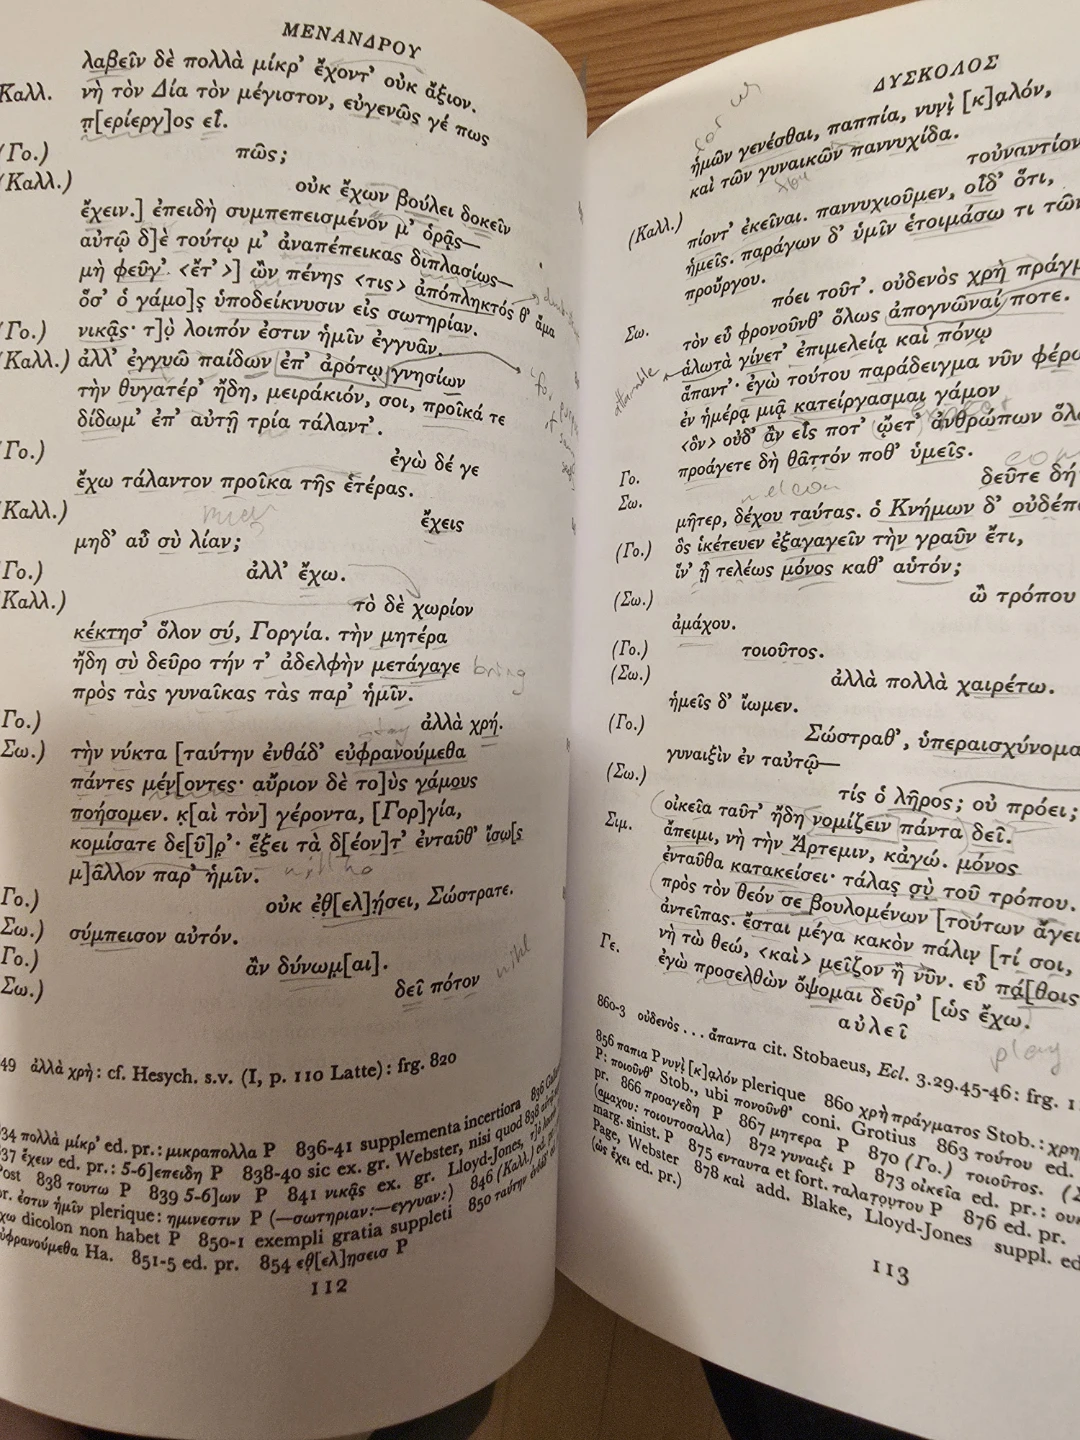 ΜΕΝΑΝΔΡΟΥ
λαβεῖν δὲ πολλὰ μίκρ' ἔχοντ' οὐκ ἄξιον.
Καλλ. νὴ τὸν Δία τὸν μέγιστον, εὐγενῶς γέ πως
π̣[ερίεργ]ος εἶ.
(Γο.) πῶς;
(Καλλ.) οὐκ ἔχων βούλει δοκεῖν
ἔχειν.] ἐπειδὴ συμπεπεισμένον μ' ὁρᾷς—
αὐτῷ δ]ὲ τούτῳ μ' ἀναπέπεικας διπλασίως—
μὴ φεῦγ'. <ἔτ'>] ὢν πένης <τις> ἀπόπληκτός θ' ἅμα
ὅσ' ὁ γάμο]ς ὑποδείκνυσιν εἰς σωτηρίαν.
(Γο.) νικᾷς· τ]ὸ̣ λοιπόν ἐστιν ἡμῖν ἐγγυᾶν.
(Καλλ.) ἀλλ' ἐγγυῶ παίδων ἐπ' ἀρότῳ γνησίων
τὴν θυγατέρ' ἤδη, μειράκιόν, σοι, προῖκά τε
δίδωμ' ἐπ' αὐτῇ τρία τάλαντ'.
(Γο.) ἐγὼ δέ γε
ἔχω τάλαντον προῖκα τῆς ἑτέρας.
(Καλλ.) ἔχεις
μηδ' αὖ σὺ λίαν;
Γο.) ἀλλ' ἔχω.
Καλλ.) τὸ δὲ χωρίον
κέκτησ' ὅλον σύ, Γοργία. τὴν μητέρα
ἤδη σὺ δεῦρο τήν τ' ἀδελφὴν μετάγαγε bring
πρὸς τὰς γυναῖκας τὰς παρ' ἡμῖν.
Γο.) ἀλλὰ χρή.
Σω.) τὴν νύκτα [ταύτην ἐνθάδ' εὐφρανούμεθα
πάντες μέν[οντες· αὔριον δὲ το]ὺς γάμους
ποήσομεν. κ̣[αὶ τὸν] γέροντα, [Γορ]γία,
κομίσατε δε[ῦ]ρ̣'· ἕξει τὰ δ[έον]τ' ἐνταῦθ' ἴσω[ς
μ]ᾶλλον παρ' ἡμῖν.
Γο.) οὐκ ἐθ̣[ελ]ή̣σει, Σώστρατε.
Σω.) σύμπεισον αὐτόν.
Γο.) ἂν δύνωμ̣[αι].
Σω.) δεῖ πότον
49 ἀλλὰ χρή: cf. Hesych. s.v. (I, p. 110 Latte): frg. 820
834 πολλὰ μίκρ' ed. pr.: μικραπολλα P 836-41 supplementa incertiora
837 ἔχειν ed. pr.: 5-6]επειδη P 838-40 sic ex. gr. Webster, nisi quod 838
Post 838 τουτω P 839 5-6]ων P 841 νικᾷς ex. gr. Lloyd-Jones,
pr. ἐστιν ἡμῖν plerique: ημινεστιν P (—σωτηριαν:—εγγυαν:) 846 (Καλλ.) ed. pr.
ἔχω dicolon non habet P 850-1 exempli gratia suppleti 850 ταύτην
εὐφρανούμεθα Ha. 851-5 ed. pr. 854 εθ̣[ελ]ησεισ P
112
ΔΥΣΚΟΛΟΣ
ἡμῶν γενέσθαι, παππία, νυνὶ̣ [κ]α̣λόν,
καὶ τῶν γυναικῶν παννυχίδα.
(Καλλ.) τοὐναντίον
πίοντ' ἐκεῖναι. παννυχιοῦμεν, οἶδ' ὅτι,
ἡμεῖς. παράγων δ' ὑμῖν ἑτοιμάσω τι τῶν
προὔργου.
Σω. πόει τοῦτ'. οὐδενὸς χρὴ πράγμ
τὸν εὖ φρονοῦνθ' ὅλως ἀπογνῶναί ποτε.
ἁλωτὰ γίνετ' ἐπιμελείᾳ καὶ πόνῳ
ἅπαντ'· ἐγὼ τούτου παράδειγμα νῦν φέρω
ἐν ἡμέρᾳ μιᾷ κατείργασμαι γάμον
<ὃν> οὐδ' ἂν εἷς ποτ' ᾤετ' ἀνθρώπων ὅλω
Γο. προάγετε δὴ θᾶττόν ποθ' ὑμεῖς.
Σω. δεῦτε δή·
μῆτερ, δέχου ταύτας. ὁ Κνήμων δ' οὐδέπ
(Γο.) ὃς ἱκέτευεν ἐξαγαγεῖν τὴν γραῦν ἔτι,
ἵν' ᾖ τελέως μόνος καθ' αὑτόν;
(Σω.) ὢ τρόπου
ἀμάχου.
(Γο.) τοιοῦτος.
(Σω.) ἀλλὰ πολλὰ χαιρέτω.
ἡμεῖς δ' ἴωμεν.
(Γο.) Σώστραθ', ὑπεραισχύνομα
γυναιξὶν ἐν ταὐτῷ—
(Σω.) τίς ὁ λῆρος; οὐ πρόει;
οἰκεῖα ταῦτ' ἤδη νομίζειν πάντα δεῖ.
Σιμ. ἄπειμι, νὴ τὴν Ἄρτεμιν, κἀγώ. μόνος
ἐνταῦθα κατακείσει· τάλας σ̣ὺ̣ τοῦ τρόπου.
πρὸς τὸν θεόν σε βουλομένων [τούτων ἄγει
ἀντεῖπας. ἔσται μέγα κακὸν πάλιν̣ [τί σοι,
νὴ τὼ θεώ, <καὶ> μεῖζον ἢ νῦν. εὖ πά̣[θοις
Γε. ἐγὼ προσελθὼν ὄψομαι δεῦρ' [ὡς ἔχω.
αὐλεῖ
play
860-3 οὐδενὸς . . . ἅπαντα cit. Stobaeus, Ecl. 3.29.45-46: frg. 1
856 παπια P νυνὶ̣ [κ]α̣λόν plerique 860 χρὴ πράγματος Stob.: χρη
P: ποιοῦνθ' Stob., ubi πονοῦνθ' coni. Grotius 863 τούτου ed.
pr. 866 προαγεδη P 867 μητερα P 870 (Γο.) τοιοῦτος. (Σ
(αμαχου: τοιουτοσαλλα) 872 γυναιξι P 873 οἰκεῖα ed. pr.: ουκ
marg. sinist. P 875 ενταυτα et fort. ταλατο̣υτου P 876 ed. pr.
Page, Webster 878 καὶ add. Blake, Lloyd-Jones suppl. ed
(ὡς ἔχει ed. pr.)
113